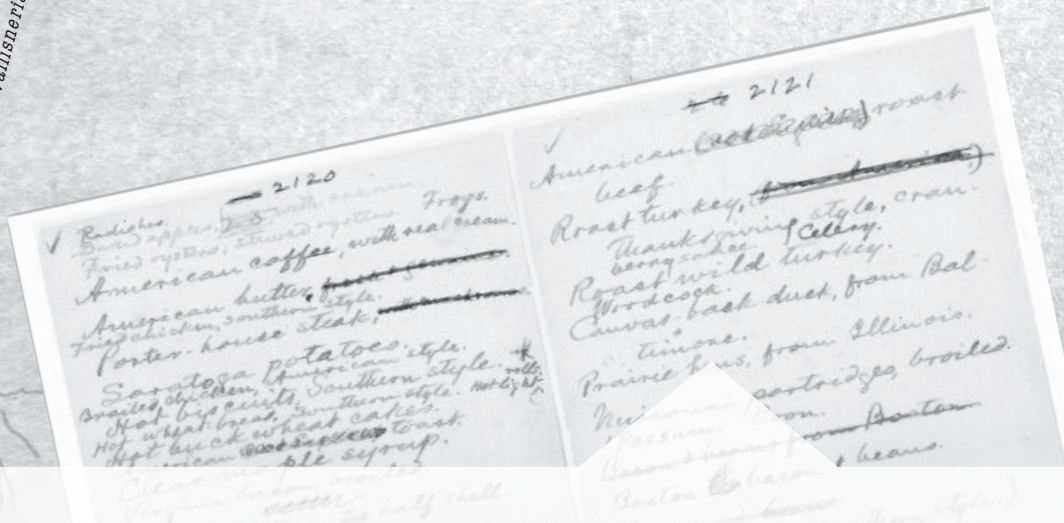 Vallisneria
2120
Radishes.
Baked apples, with cream
Fried oysters; stewed oysters. Frogs.
American coffee, with real cream.
American butter.
Fried chicken, southern style.
Porter-house steak,
Saratoga potatoes.
Broiled chicken, American style.
Hot biscuits, Southern style.
Hot wheat-bread, Southern style. Hot light rolls.
Hot buckwheat cakes.
American toast.
Clear maple syrup.
Virginia bacon, broiled
the half shell.
2121
American roast
beef.
Roast turkey,
Thanksgiving style, cran-
berry sauce. Celery.
Roast wild turkey.
Woodcock.
Canvas-back duck, from Bal-
timore.
Prairie hens, from Illinois.
Missouri partridges, broiled.
Possum. Coon.
Bacon & beans from Boston
Boston bacon & beans.